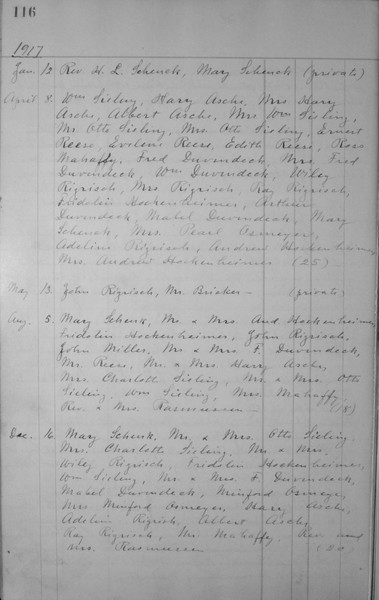 116
1917
Jan. 12 Rev. H. L. Schenck, Mary Schenck (private)
April 8. Wm Sisling, Harry Aschs, Mrs Harry
Aschs, Albert Aschs, Mrs Wm Sisling,
Mr. Otto Sisling, Mrs. Otto Sisling, Ernest
Reese, Evelene Reese, Edith Reese, Ross
Mahaffy, Fred Duvendeck, Mrs. Fred
Duvendeck, Wm Duvendeck, Wiley
Rigrisch, Mrs Rigrisch, Ray Rigrisch,
Fridolin Hockenheimer, Arthur
Duvendeck, Mabel Duvendeck, Mary
Schenck, Mrs. Pearl Osmeyer,
Adeline Rigrisch, Andrew Hockenheimer,
Mrs. Andrew Hockenheimer (25)
May 13. John Rigrisch, Mr. Bricker - (private)
Aug. 5. Mary Schenk, Mr. & Mrs. And. Hockenheimer,
Fridolin Hockenheimer, John Rigrisch,
John Miller, Mr & Mrs F. Duvendeck,
Mr. Reese, Mr. & Mrs. Harry Aschs,
Mrs. Charlott Sisling, Mr. & Mrs. Otto
Sisling. Wm Sisling, Mrs. Mahaffy,
Rev. & Mrs. Rasmussen - (18)
Dec. 16. Mary Schenk, Mr. & Mrs. Otto Sisling.
Mrs. Charlotte Sisling, Mr. & Mrs.
Wiley Rigrisch, Fridolin Hockenheimer,
Wm Sisling, Mr & Mrs F. Duvendeck,
Mabel Duvendeck, Minford Osmeyer,
Mrs Minford Osmeyer, Harry Aschs,
Adeline Rigrisch, Albert Aschs,
Ray Rigrisch, Mr. Mahaffy, Rev. and
Mrs. Rasmussen (20)